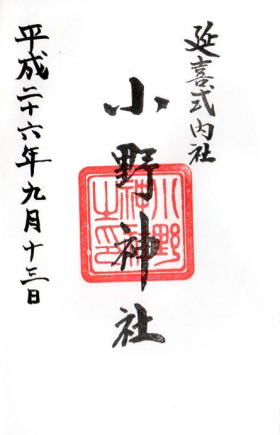 延喜式内社
小野神社
小野神社之印
平成二十六年九月十三日